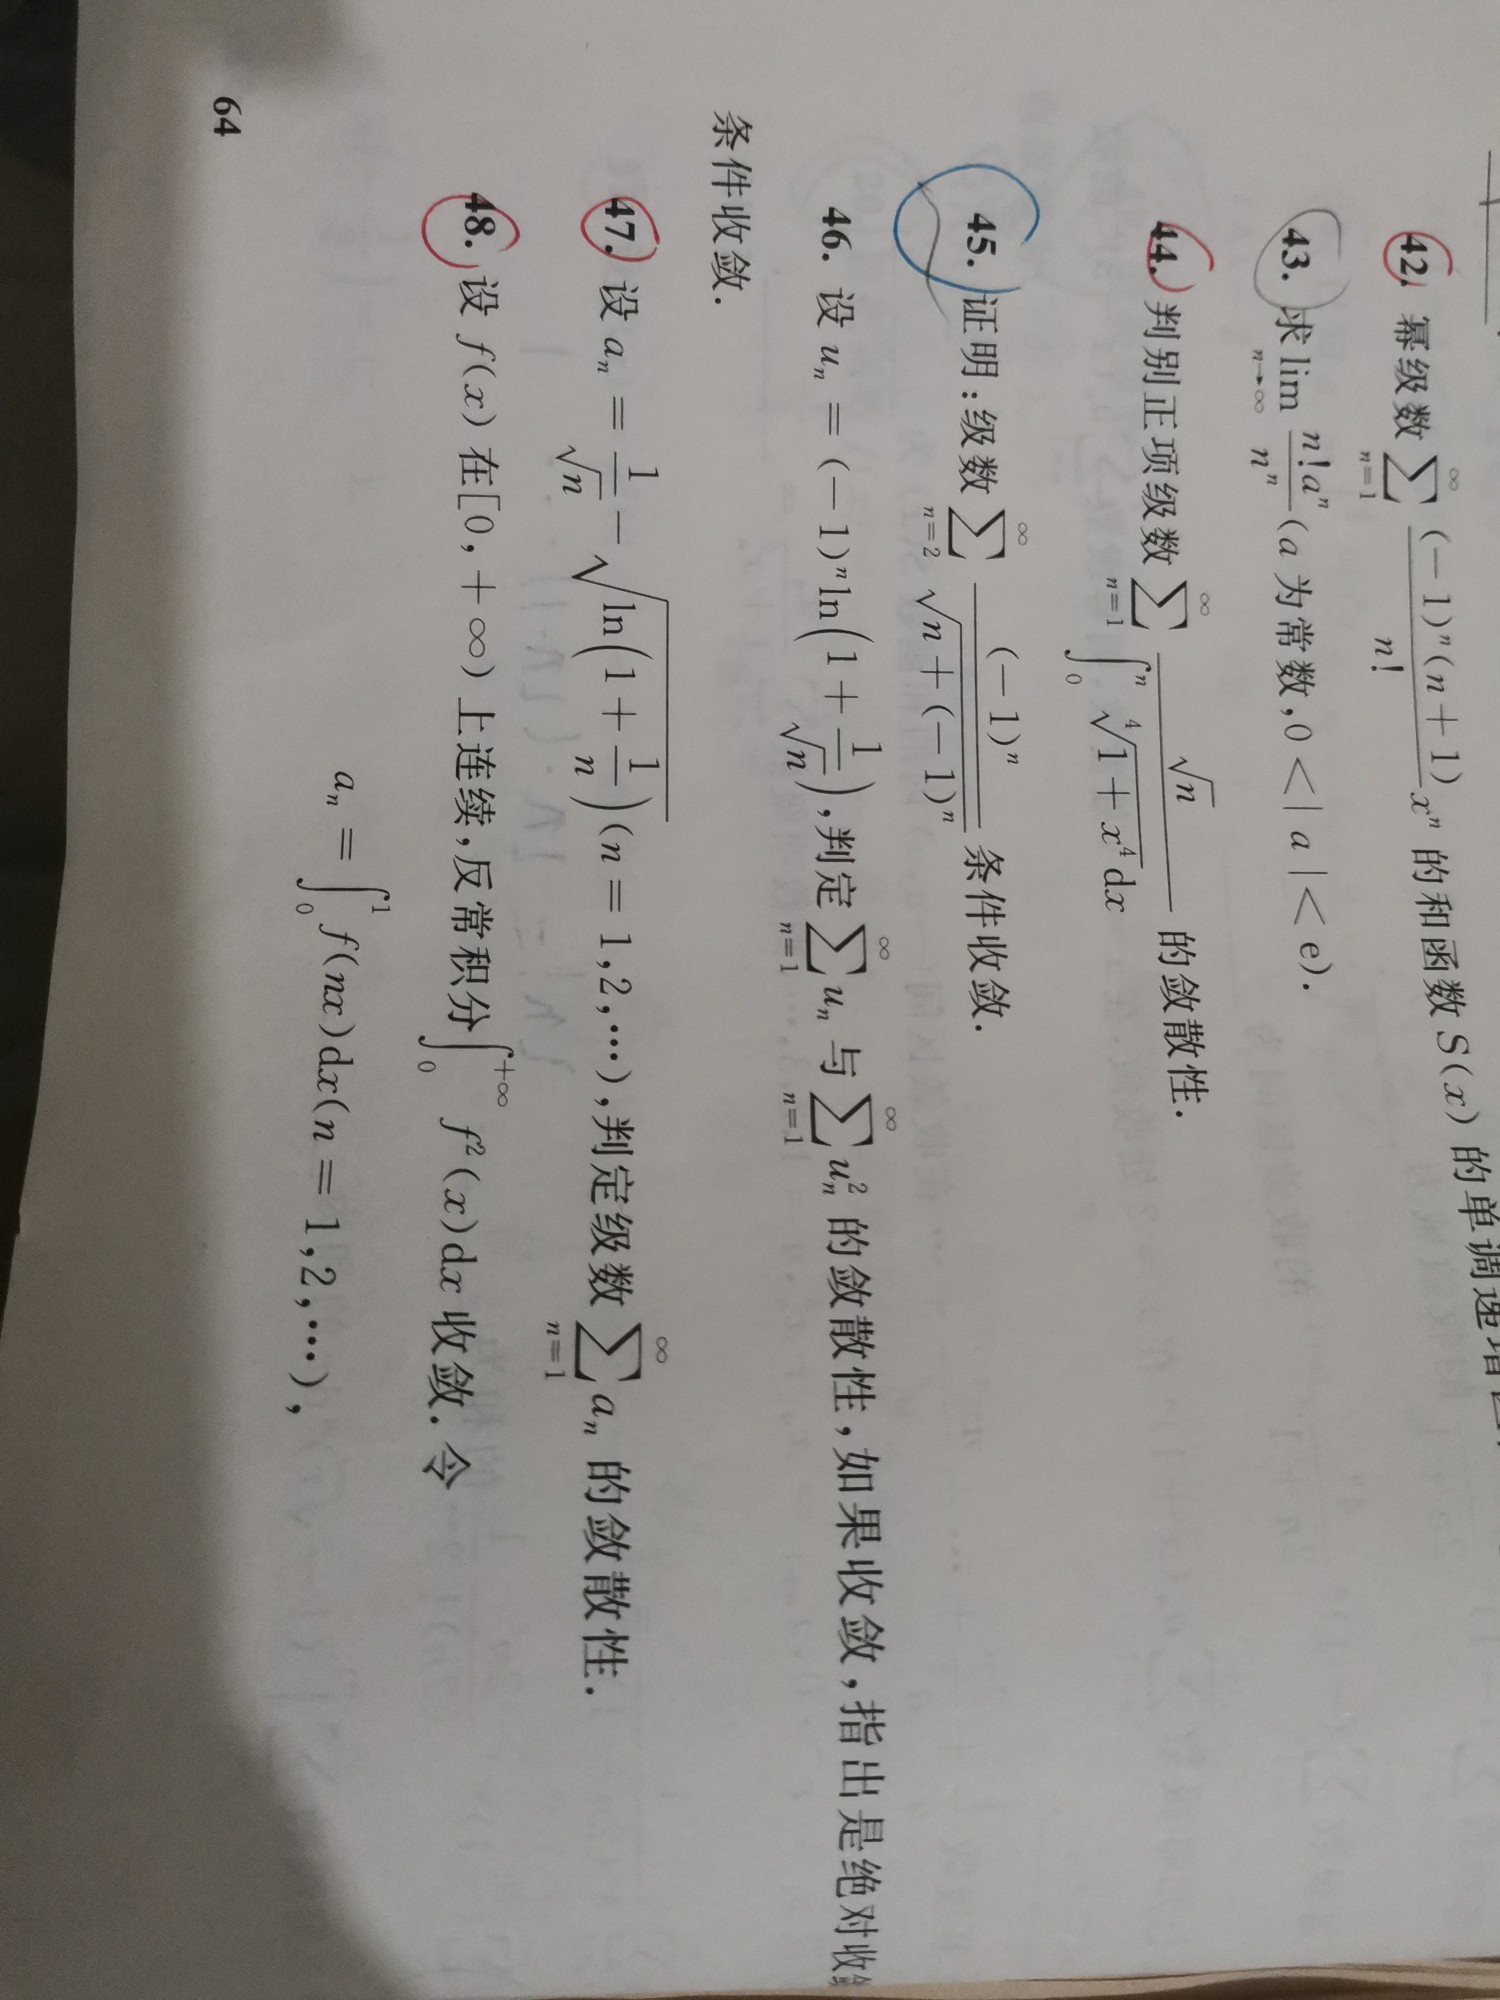 42. 幂级数 $\sum_{n=1}^{\infty} \frac{(-1)^n(n+1)}{n!} x^n$ 的和函数 $S(x)$ 的单调递增
43. 求 $\lim_{n\to\infty} \frac{n!a^n}{n^n}$ (a 为常数, $0<|a|<\mathrm{e}$).
44. 判别正项级数 $\sum_{n=1}^{\infty} \frac{\sqrt{n}}{\int_0^n \sqrt[4]{1+x^4}\,\mathrm{d}x}$ 的敛散性.
45. 证明:级数 $\sum_{n=2}^{\infty} \frac{(-1)^n}{\sqrt{n+(-1)^n}}$ 条件收敛.
46. 设 $u_n=(-1)^n\ln\left(1+\frac{1}{\sqrt{n}}\right)$,判定 $\sum_{n=1}^{\infty} u_n$ 与 $\sum_{n=1}^{\infty} u_n^2$ 的敛散性,如果收敛,指出是绝对收敛
条件收敛.
47. 设 $a_n=\frac{1}{\sqrt{n}}-\sqrt{\ln\left(1+\frac{1}{n}\right)}(n=1,2,\cdots)$,判定级数 $\sum_{n=1}^{\infty} a_n$ 的敛散性.
48. 设 $f(x)$ 在 $[0,+\infty)$ 上连续,反常积分 $\int_0^{+\infty} f^2(x)\mathrm{d}x$ 收敛. 令
$a_n=\int_0^1 f(nx)\mathrm{d}x(n=1,2,\cdots)$,
64